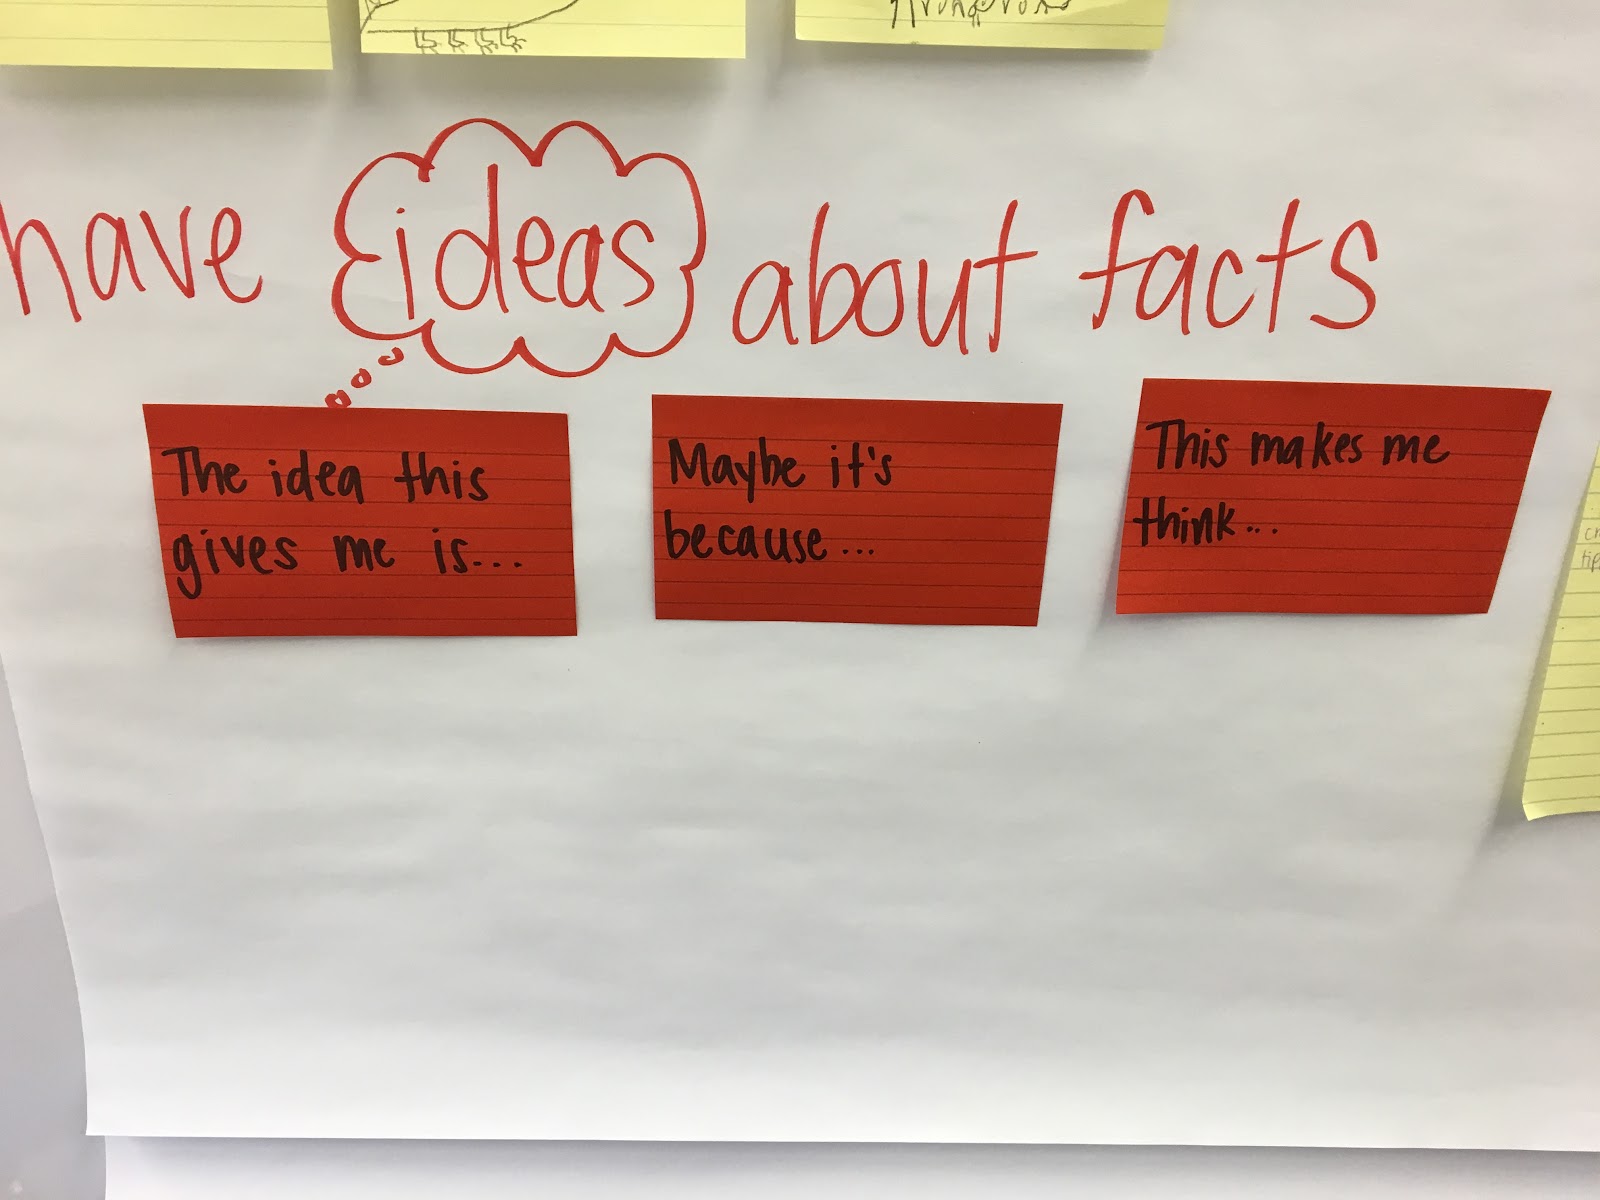 have ideas about facts
The idea this
gives me is...
Maybe it's
because...
This makes me
think...